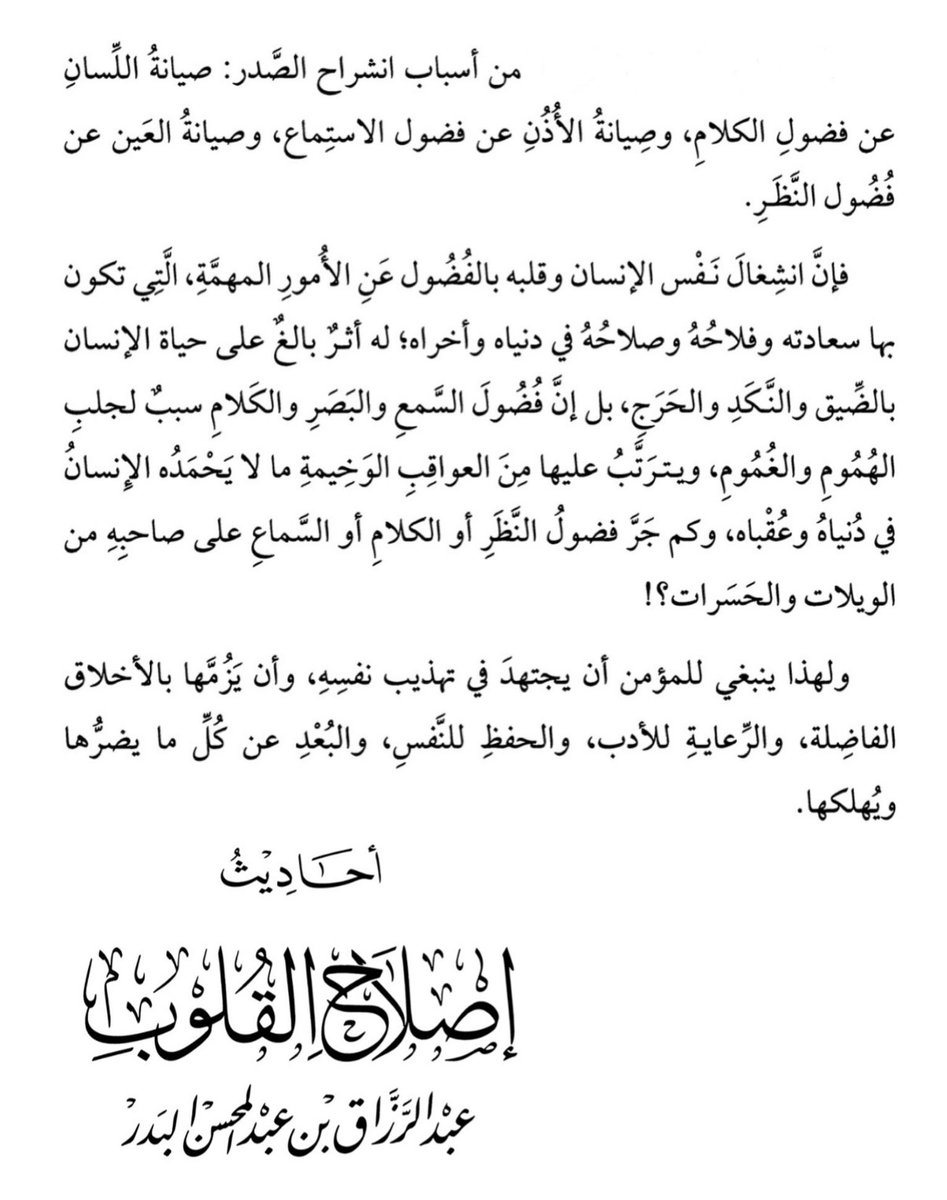 من أسباب انشراح الصَّدر: صيانةُ اللِّسانِ
عن فضولِ الكلامِ، وصِيانةُ الأُذُنِ عن فضول الاستِماع، وصيانةُ العَين عن
فُضُول النَّظَرِ.
فإنَّ انشِغالَ نَفْس الإنسان وقلبه بالفُضُول عَنِ الأُمورِ المهمَّةِ، الَّتِي تكون
بها سعادته وفلاحُهُ وصلاحُهُ في دنياه وأخراه؛ له أثرٌ بالغٌ على حياة الإنسان
بالضِّيق والنَّكَدِ والحَرَجِ، بل إنَّ فُضُولَ السَّمعِ والبَصَرِ والكَلامِ سببٌ لجلبِ
الهُمُومِ والغُمُومِ، ويترَتَّبُ عليها مِنَ العواقِبِ الوَخِيمةِ ما لا يَحْمَدُه الإنسانُ
في دُنياهُ وعُقْباه، وكم جَرَّ فضولُ النَّظَرِ أو الكلامِ أو السَّماعِ على صاحبِهِ من
الويلات والحَسَرات؟!
ولهذا ينبغي للمؤمن أن يجتهدَ في تهذيب نفسِهِ، وأن يَزُمَّها بالأخلاق
الفاضِلة، والرِّعايةِ للأدب، والحفظِ للنَّفسِ، والبُعْدِ عن كُلِّ ما يضرُّها
ويُهلكها.
أحَادِيْثُ
إصْلَاحُ القُلُوبِ
عبْدالرَّزَّاق بْن عبْدالمحسنْ البَدرْ